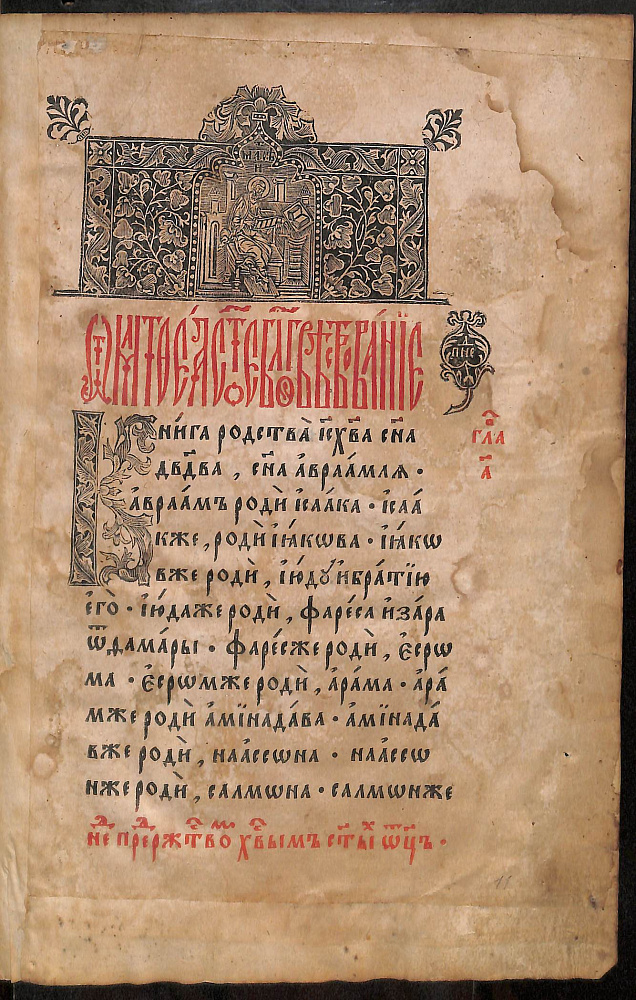 Ѿ МАТѲЕ́А СТ҃ОЕ БЛГОВѢСТВОВА́НЇЕ
Кни́га родства̀ і҆с х҃ва сн҃а
дв҃два , сн҃а а҆враа́млѧ ·
а҆враа́мъ родѝ і҆саа́ка · і҆саа́
кже , родѝ і҆ꙗ́кѡва · і҆ꙗ́кѡ
вже родѝ , і҆ю́дꙋ и҆бра́тїю
є҆го̀ · і҆ю́даже родѝ , фаре́са и҆за́ра
ѿѳама́ры · фаре́сже родѝ , є҆срѡ
ма · є҆срѡ́мже родѝ , а҆ра́ма · а҆ра́
мже родѝ а҆мїнада́ва · а҆мїнада́
вже родѝ , наассѡ́на · наассѡ́
нже родѝ , салмѡ́на · салмѡ́нже
гла
а҃
не҃д пре́д ржⷭ҇твоⷨ х҃вымъ ст҃ыⷯ ѻ҆ц҃ъ ·